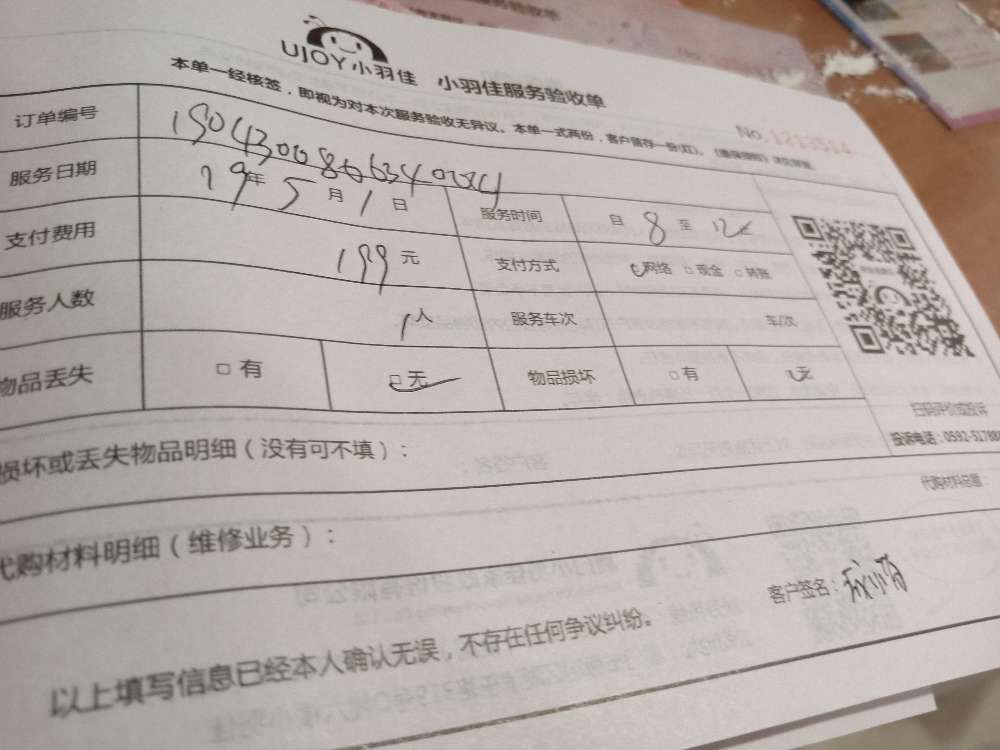 UJOY小羽佳 小羽佳服务验收单
本单一经核签，即视为对本次服务验收无异议。本单一式两份，客户留存一份(红)。
No.1213514
订单编号
服务日期 19年5月1日 服务时间 自8至12
支付费用 199元 支付方式 网络 □现金 □转账
服务人数 1人 服务车次 车/次
物品丢失 □有 □无 物品损坏 □有 无
扫码评价或投诉
投诉电话：0592-51788
损坏或丢失物品明细（没有可不填）：
代购材料总额：
代购材料明细（维修业务）：
客户签名：
以上填写信息已经本人确认无误，不存在任何争议纠纷。